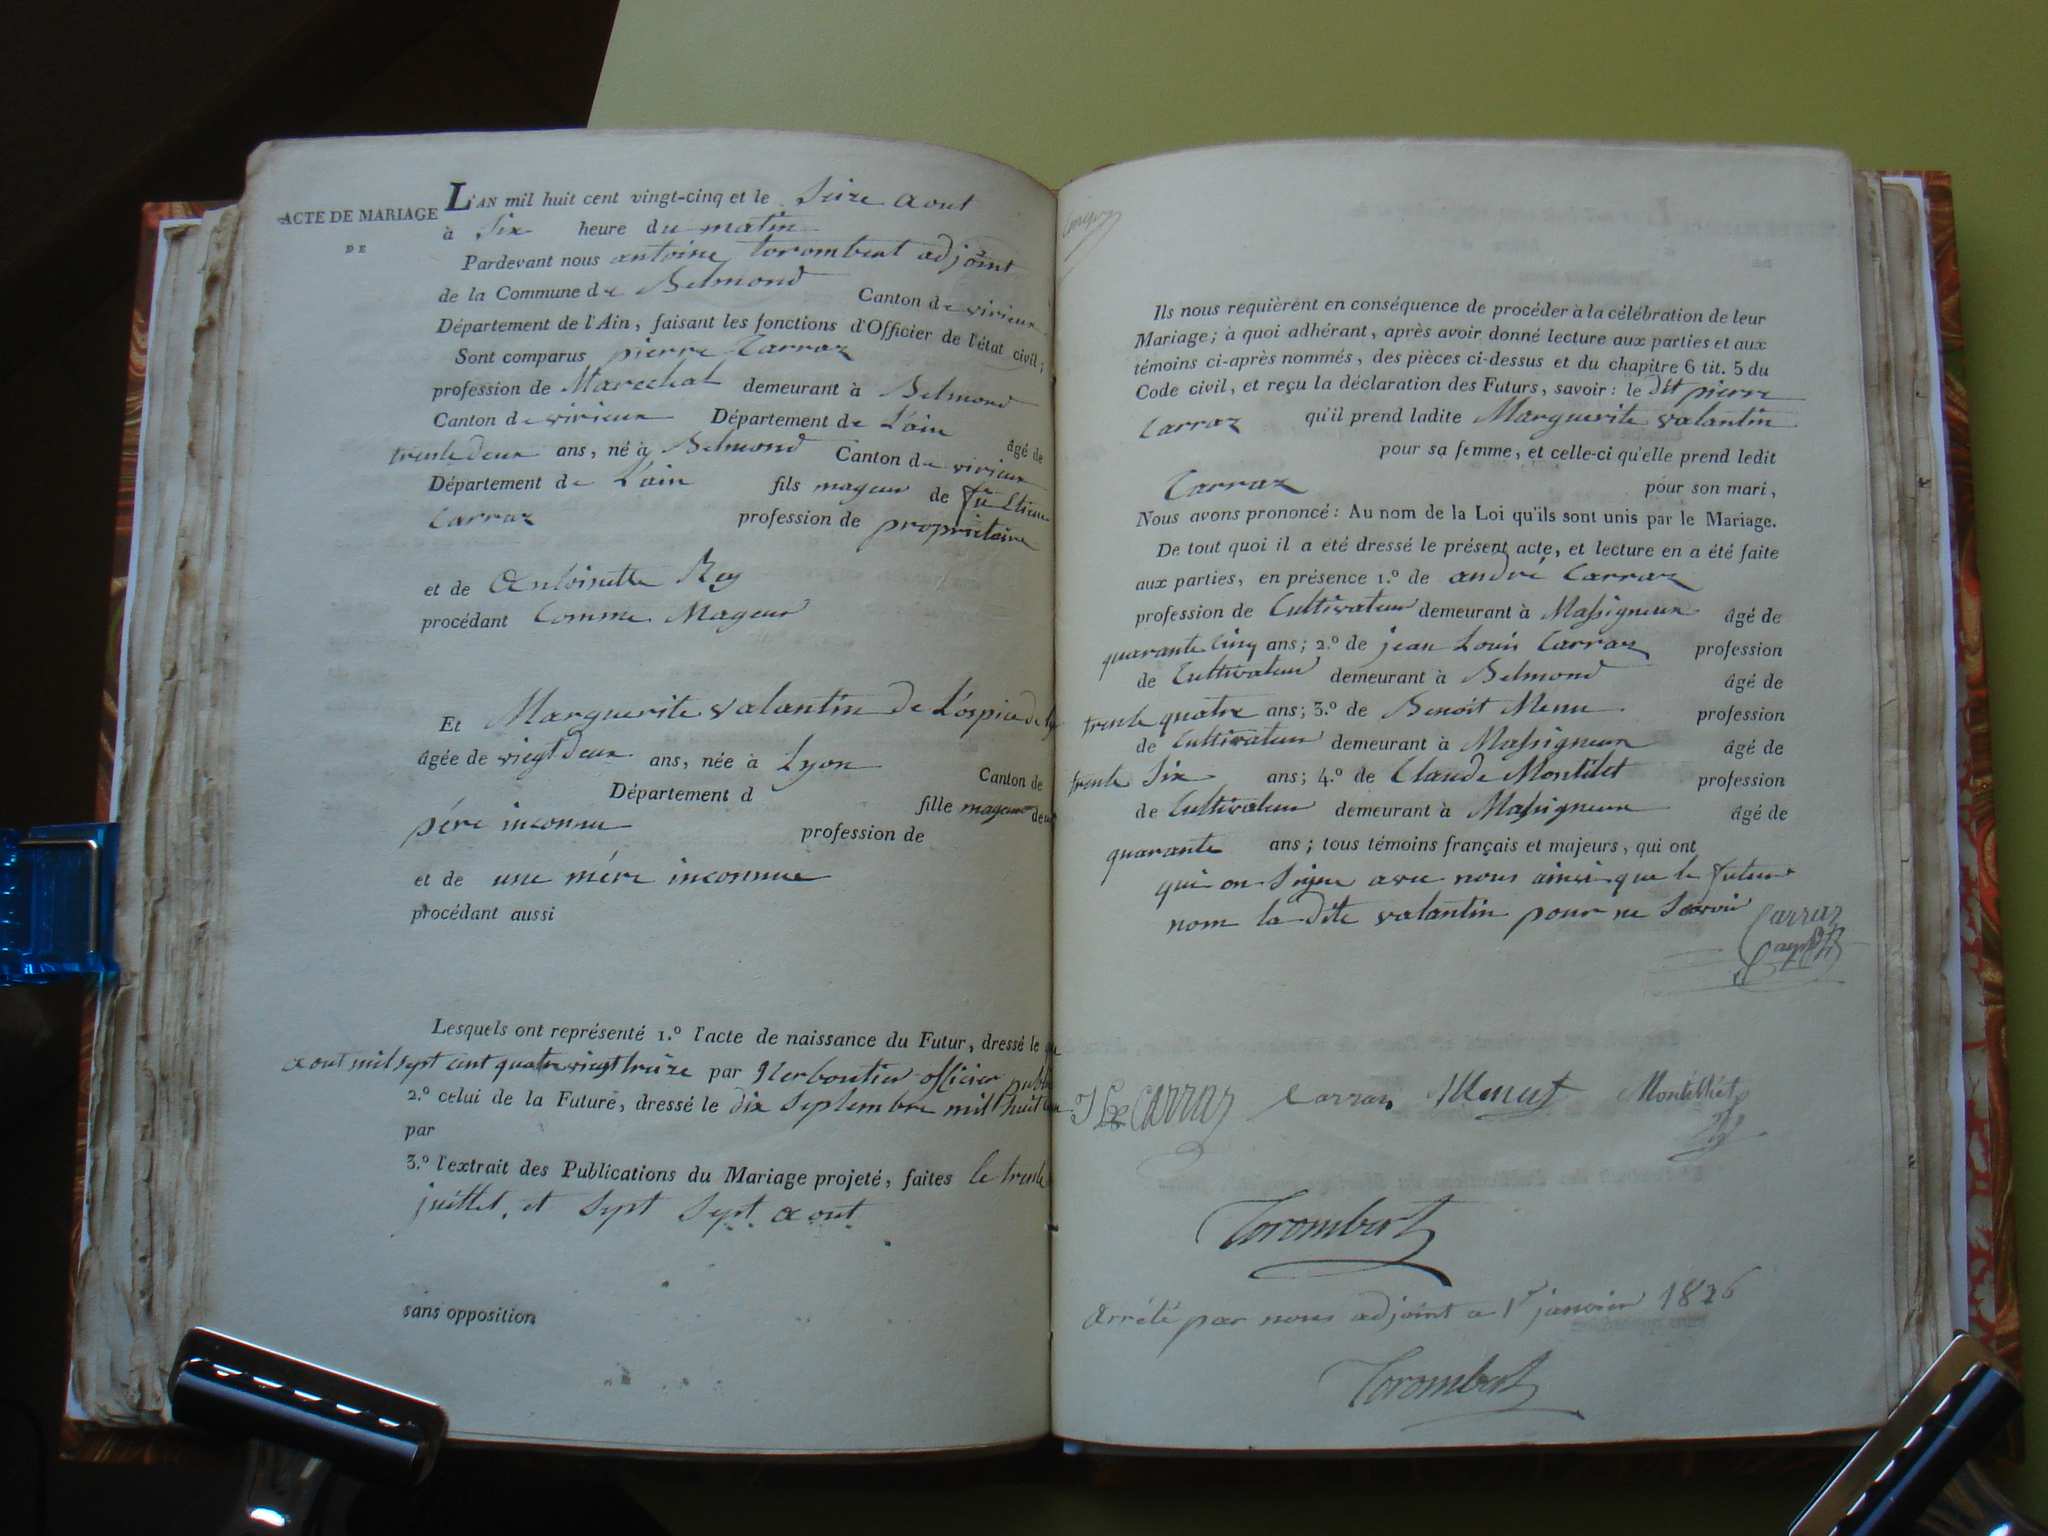 ACTE DE MARIAGE
DE
L'AN mil huit cent vingt-cinq et le Seize aout
à Six heure du matin
Pardevant nous antoine torombert adjoint
de la Commune de Belmond Canton de virieux
Département de l'Ain, faisant les fonctions d'Officier de l'état civil;
Sont comparus pierre Carraz
profession de Marechal demeurant à Belmond
Canton de virieux Département de L'ain âgé de
trente deux ans, né à Belmond Canton de virieux
Département de L'ain fils mageur de fu Etienne
Carraz profession de propriétaire
et de Antoinette Rey
procédant Comme Mageur
Et Marguerite valantin de L'ospice de
âgée de vingt deux ans, née à Lyon Canton de
Département d fille mageur de
père inconnu profession de
et de une mére inconnue
procédant aussi
Lesquels ont représenté 1.º l'acte de naissance du Futur, dressé le
aout mil sept cent quatre vingt treize par officier
2.º celui de la Future, dressé le dix Septembre mil huit
par
3.º l'extrait des Publications du Mariage projeté, faites le trente
juillet, et Sept Sept aout
sans opposition
Ils nous requièrent en conséquence de procéder à la célébration de leur
Mariage; à quoi adhérant, après avoir donné lecture aux parties et aux
témoins ci-après nommés, des pièces ci-dessus et du chapitre 6 tit. 5 du
Code civil, et reçu la déclaration des Futurs, savoir: le dit pierre
Carraz qu'il prend ladite Marguerite valantin
pour sa femme, et celle-ci qu'elle prend ledit
Carraz pour son mari,
Nous avons prononcé: Au nom de la Loi qu'ils sont unis par le Mariage.
De tout quoi il a été dressé le présent acte, et lecture en a été faite
aux parties, en présence 1.º de andré Carraz
profession de Cultivateur demeurant à Massigneux âgé de
quarante Cinq ans; 2.º de jean Louis Carraz profession
de Cultivateur demeurant à Belmond âgé de
trente quatre ans; 3.º de Benoit Menu profession
de Cultivateur demeurant à Massigneux âgé de
trente Six ans; 4.º de Claude Montillet profession
de Cultivateur demeurant à Massigneux âgé de
quarante ans; tous témoins français et majeurs, qui ont
qui on Signe avec nous ainsi que le futur
nom la dite valantin pour ne Savoir
Carraz
Carraz Carraz Menut Montilliet
Torombert
Arrété par nous adjoint a 1er janvier 1826
Torombert